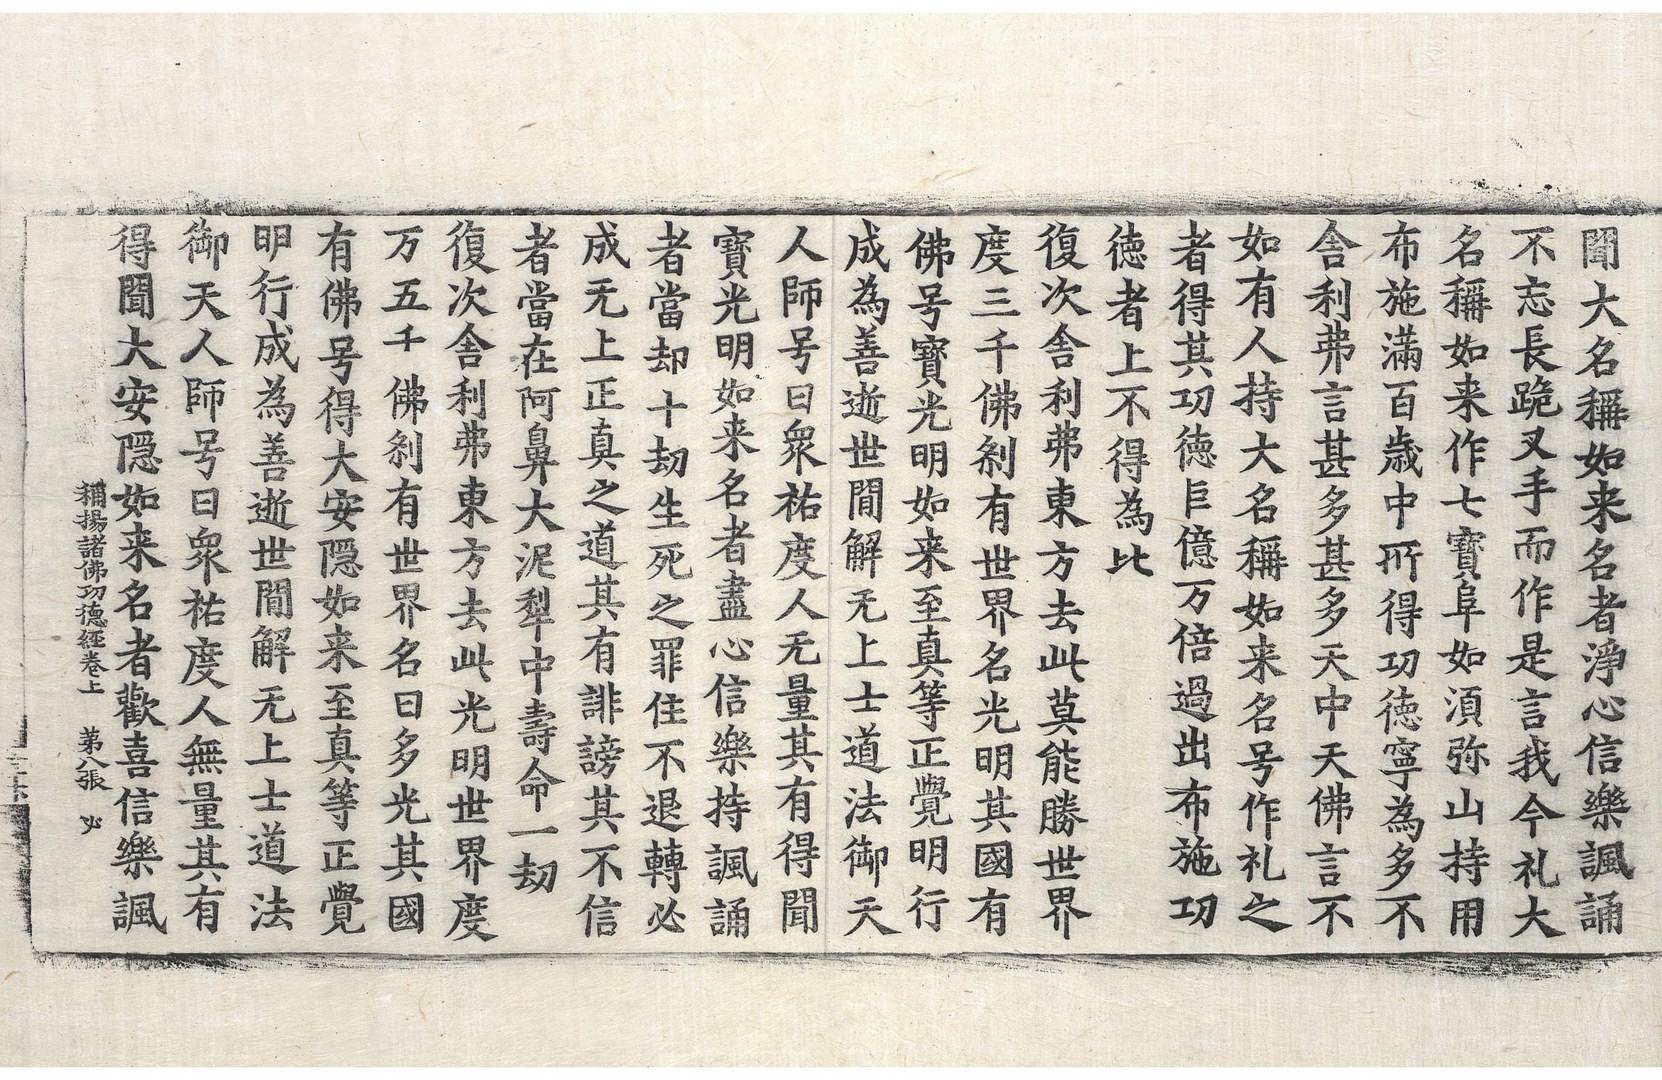 聞大名稱如来名者淨心信樂諷誦
不忘長跪叉手而作是言我今礼大
名稱如来作七寶阜如湏弥山持用
布施滿百歳中所得功徳寧為多不
舎利弗言甚多甚多天中天佛言不
如有人持大名稱如来名号作礼之
者得其功徳巨億万倍過出布施功
徳者上不得為比
復次舎利弗東方去此莫能勝世界
度三千佛刹有世界名光明其國有
佛号寶光明如来至真等正覺明行
成為善逝世間解无上士道法御天
人師号曰衆祐度人无量其有得聞
寶光明如来名者盡心信樂持諷誦
者當却十劫生死之罪住不退轉必
成无上正真之道其有誹謗其不信
者當在阿鼻大泥犁中壽命一劫
復次舎利弗東方去此光明世界度
万五千佛刹有世界名曰多光其國
有佛号得大安隠如来至真等正覺
明行成為善逝世間解无上士道法
御天人師号曰衆祐度人無量其有
得聞大安隠如来名者歡喜信樂諷
稱揚諸佛功徳經卷上 第八張